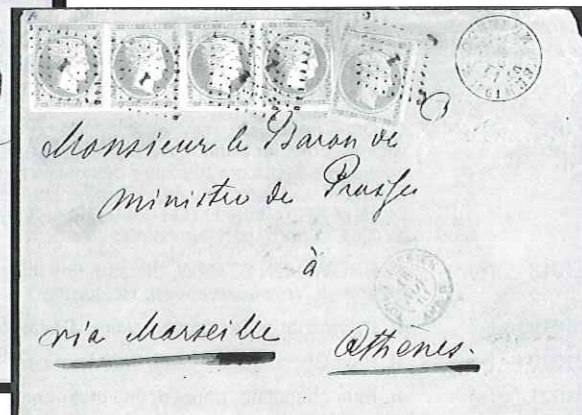 Monsieur le Baron de
ministre de Prusse
à
via Marseille Athènes.